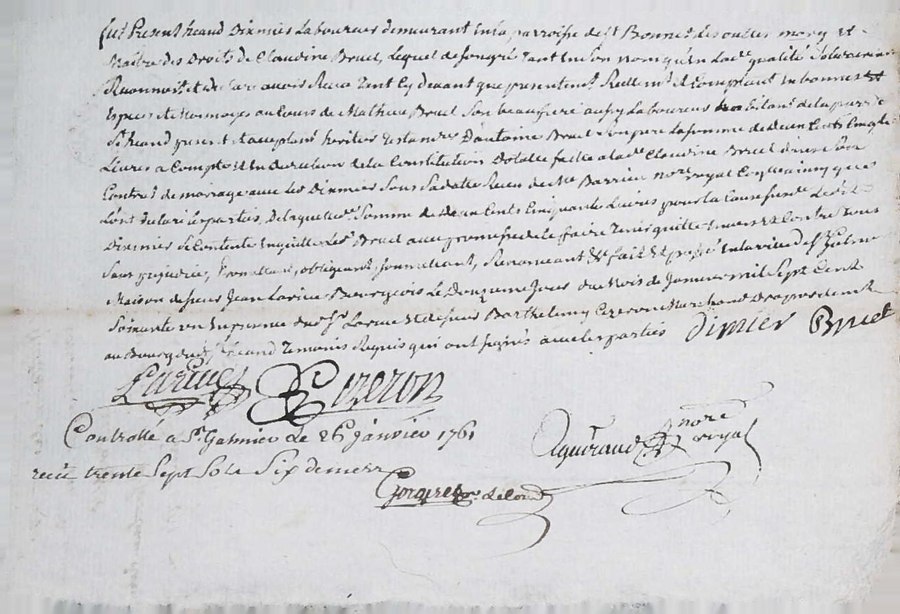 fut Present heand Dimier Laboureur demeurant en la parroisse de St Bonnet les oulles mary et
Maitre des Droits de Claudine Bruel, Lequel de son gré tant en son nom qu'en lad. qualité
Reconnoit et declare avoir Receu tant cy devant que presentement Reellement et Comptant en bonnes
Especes de Monnoyes au Cours de Mathieu Bruel Son beaufrere aussy Laboureur habitant de la parr. de
St heand present et acceptant heritier testam. D'antoine Bruel Son pere La somme de deux Cents Cinq.te
Livres a Compte et en deduction de la Constitution Dotalle faite a lad. Claudine Bruel dans Son
Contrat de mariage avec led. Dimier Sous Sa datte Receu de Me Barrieu nore royal
Lont declaré les parties, De laquelle Somme de deux Cents Cinquante Livres pour la Cause sus de. led.
Dimier Se Contente En quitte led. Bruel avec promesse de le faire tenir quitte Envers et Contre tous
Sans prejudice, Promettant, obligeant, soumettant, Renonceant &c fait et passé
Maison de sieur Jean Larive Bourgeois Le Douzieme Jour du Mois de Janvier mil Sept Cent
Soixante un En presence dud. Sr. Larive et de sieur Barthelemy Cizeron Marchand
au Bourg dud. St heand temoins Requis qui ont signés avec les parties Dimier Bruel
Larive Cizeron
nore
royal
Controllé a St Galmier le 26 janvier 1761
recu trente Sept Sols Six deniers